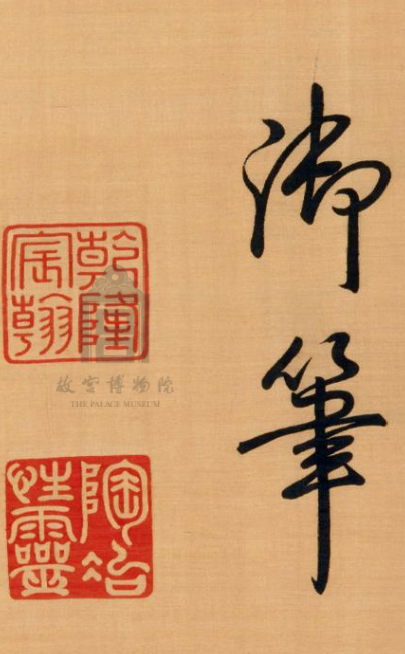 御筆
乾隆
宸翰
陶冶
性靈
故宫博物院
THE PALACE MUSEUM